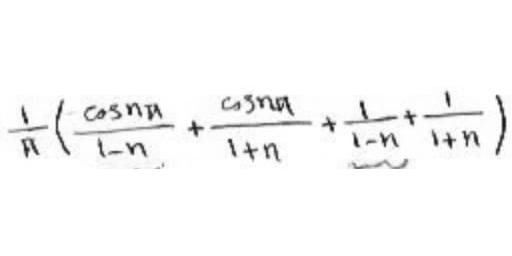 1/π ( cosnπ/1-n + cosnπ/1+n + 1/1-n + 1/1+n )